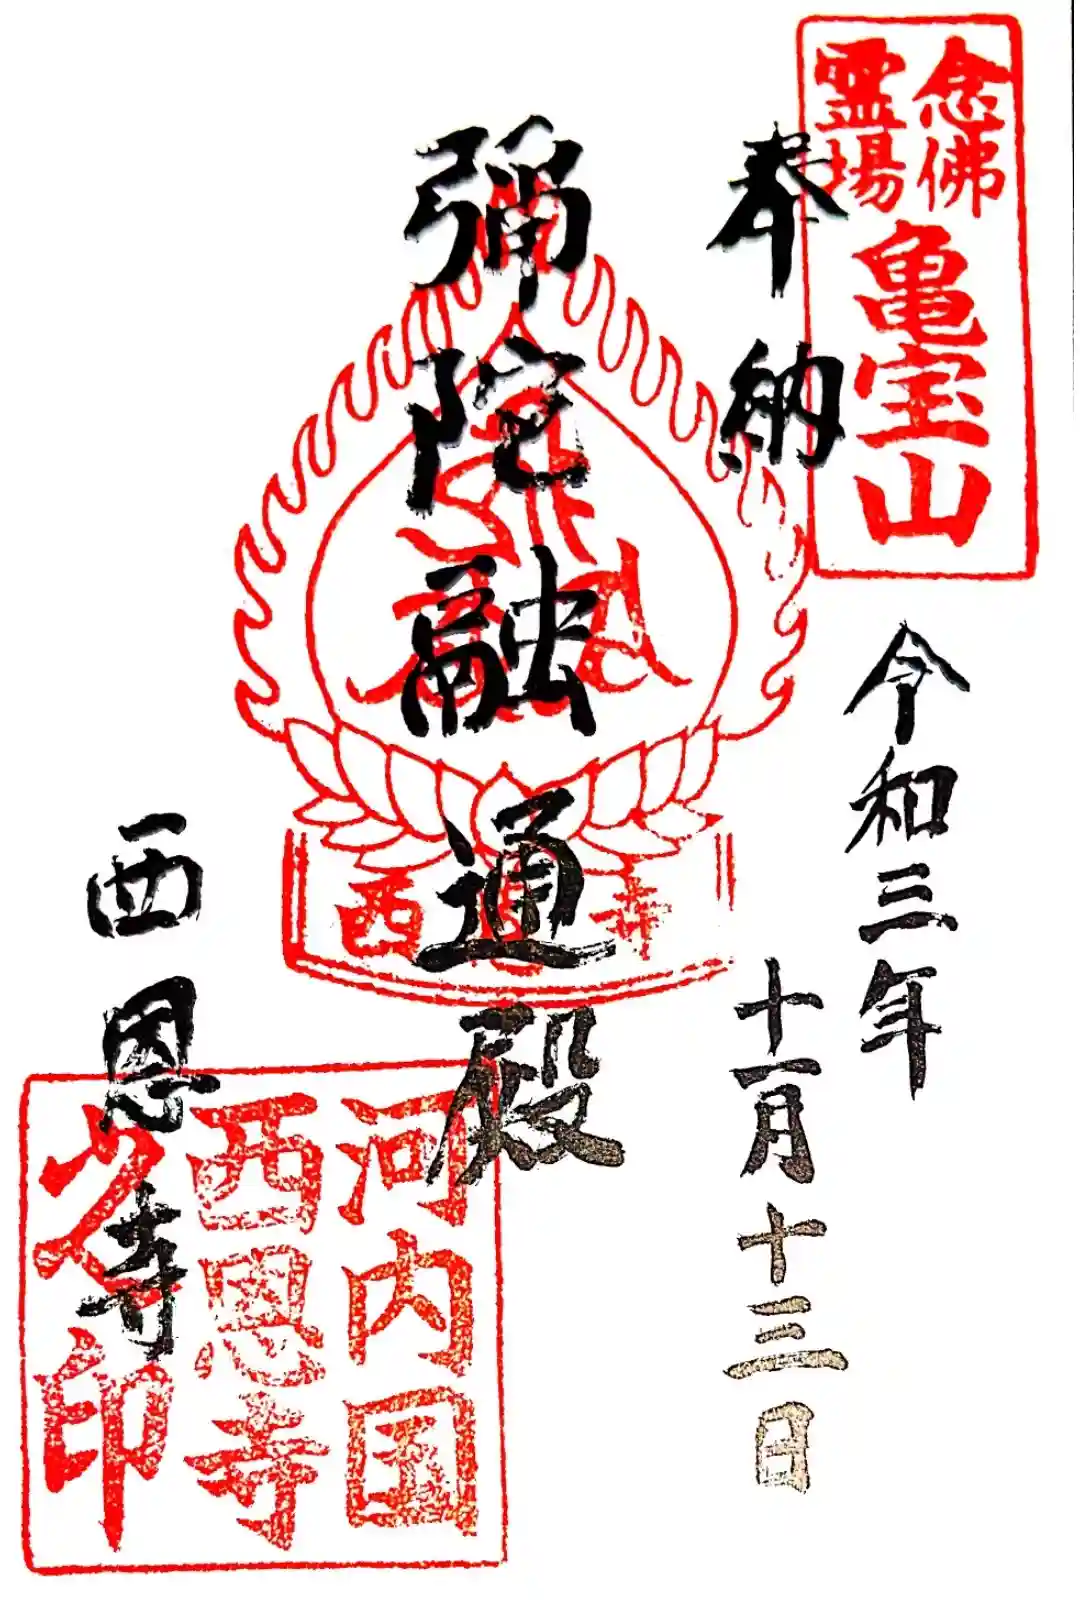 念佛
霊場
亀宝山
奉納
令和三年
十一月十三日
彌陀融通殿
西恩寺
西
寺
河内国
西恩寺
之印